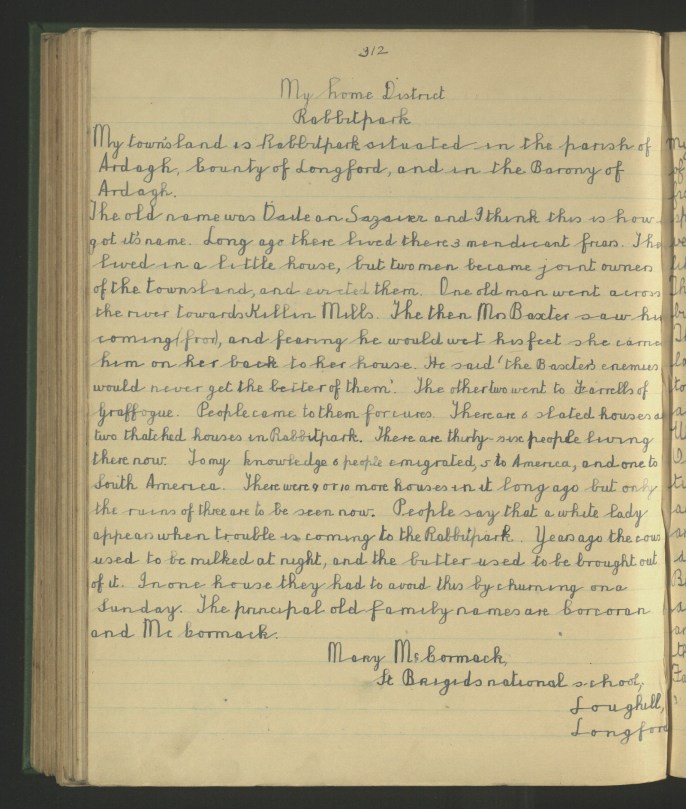 312
My home District
Rabbitpark
My townsland is Rabbitpark situated in the parish of
Ardagh, County of Longford, and in the Barony of
Ardagh.
The old name was and I think this is how
got it's name. Long ago there lived there 3 mendicant friars. The
lived in a little house, but two men became joint owners
of the townsland, and evicted them. One old man went across
the river towards Killin Mills. The then Mrs Baxter saw hi
coming (fror), and fearing he would wet his feet she carrie
him on her back to her house. He said 'the Baxter's enemies
would never get the better of them'. The other two went to Farrells of
Graffogue. People came to them for cures. There are 6 slated houses a
two thatched houses in Rabbitpark. There are thirty-six people living
there now. To my knowledge 6 people emigrated, 5 to America, and one to
South America. There were 9 or 10 more houses in it long ago but only
the ruins of three are to be seen now. People say that a white lady
appears when trouble is coming to the Rabbitpark. Years ago the cows
used to be milked at night, and the butter used to be brought out
of it. In one house they had to avoid this by churning on a
Sunday. The principal old family names are Corcoran
and Mc Cormack.
Mary McCormack,
St Brigids national school,
Loughill,
Longford